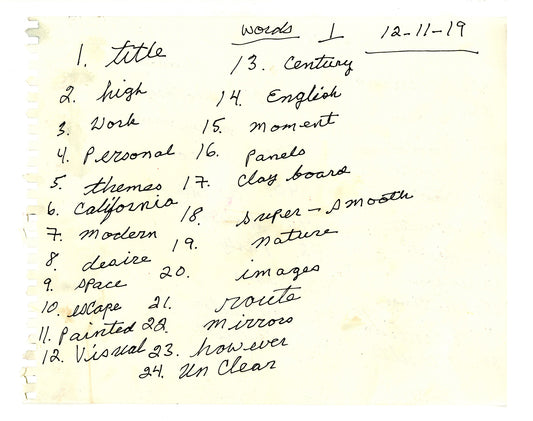 words 1 12-11-19
1. title
2. high
3. Work
4. Personal
5. themes
6. California
7. modern
8. desire
9. space
10. escape
11. Painted
12. Visual
13. Century
14. English
15. moment
16. panels
17. Clay board
18. super-smooth
19. nature
20. images
21. route
22. mirrors
23. however
24. Un Clear